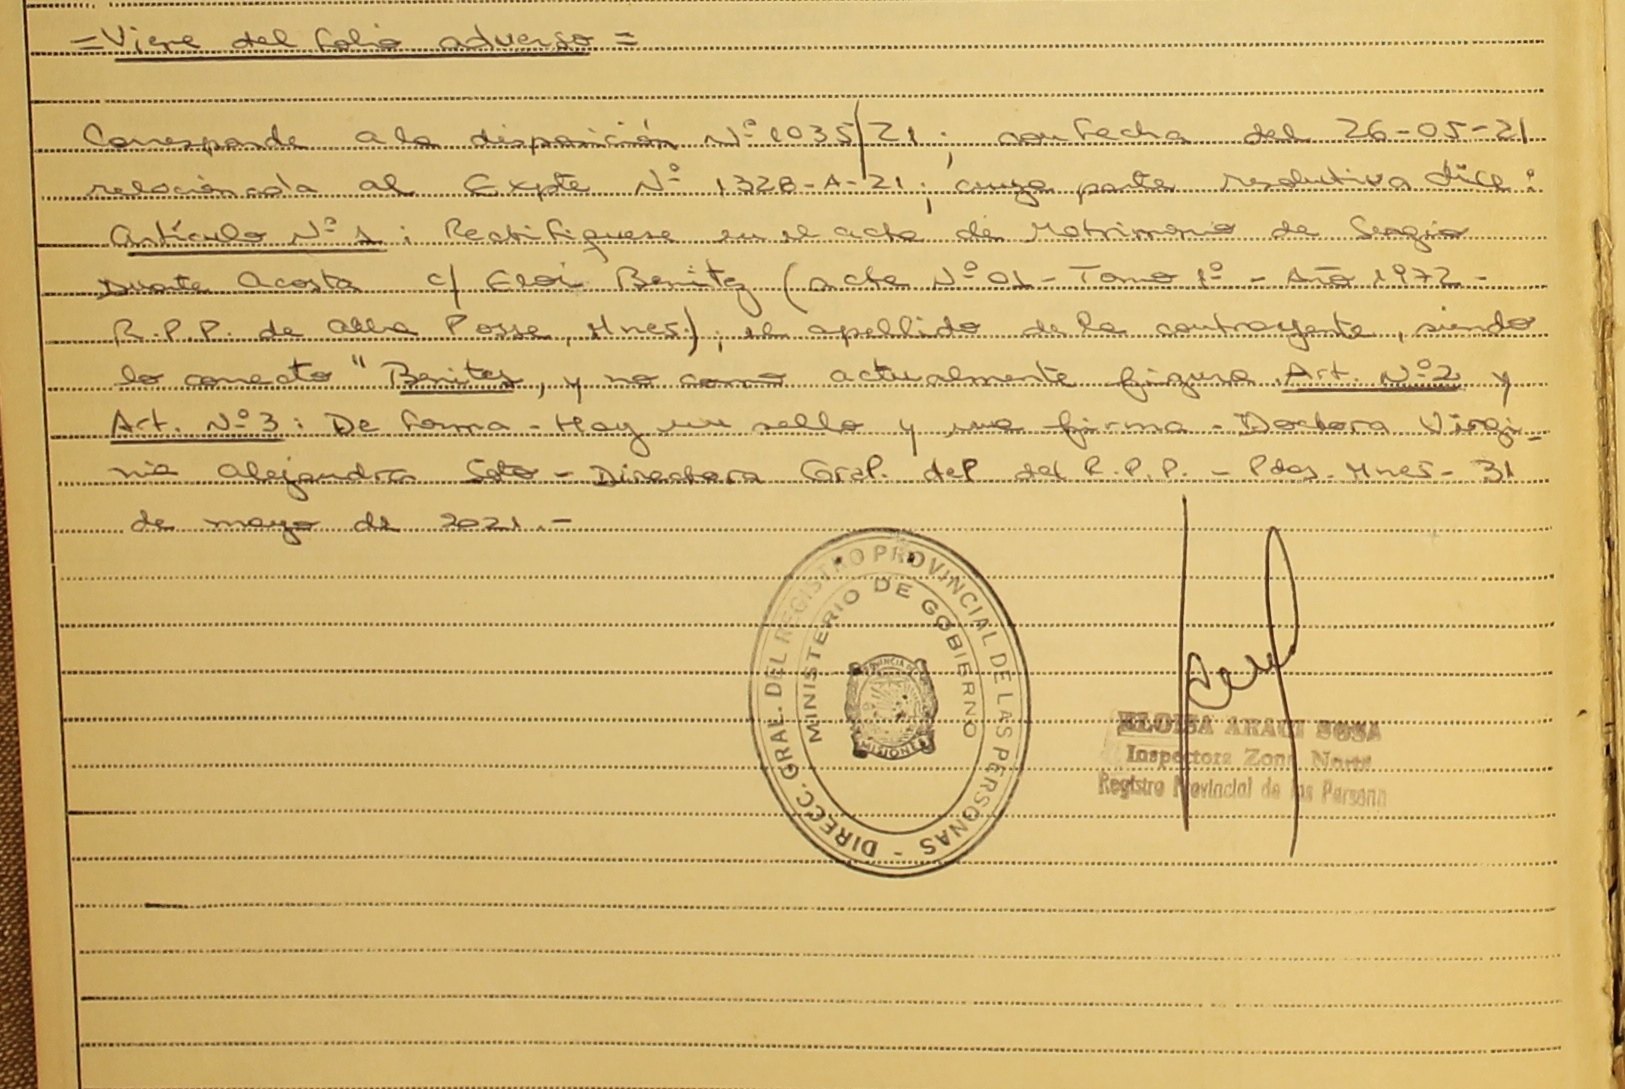 =Viene del folio adverso=
Corresponde a la disposición Nº 1035/21; con fecha del 26-05-21
relacionada al Expte Nº 1328-A-21; cuya parte resolutiva dice:
Artículo Nº 1: Rectifiquese en el acta de Matrimonio de Sergio
Duarte Acosta c/ Eloi Benitz (acta Nº 01 - Tomo 1º - Año 1972 -
R.P.P. de Alba Posse, Mnes.); el apellido de la contrayente, siendo
lo correcto "Benites, y no como actualmente figura. Art. Nº 2 y
Art. Nº 3: De forma - Hay un sello y una firma - Doctora Virgi-
nia Alejandra Soto - Directora Gral. del del R.P.P. - Pdas. Mnes - 31
de mayo de 2021.-
DIRECC. GRAL. DEL REGISTRO PROVINCIAL DE LAS PERSONAS -
MINISTERIO DE GOBIERNO
PROVINCIA DE
MISIONES
ELOISA ARAUI SOSA
Inspectora Zona Norte
Registro Provincial de las Persona